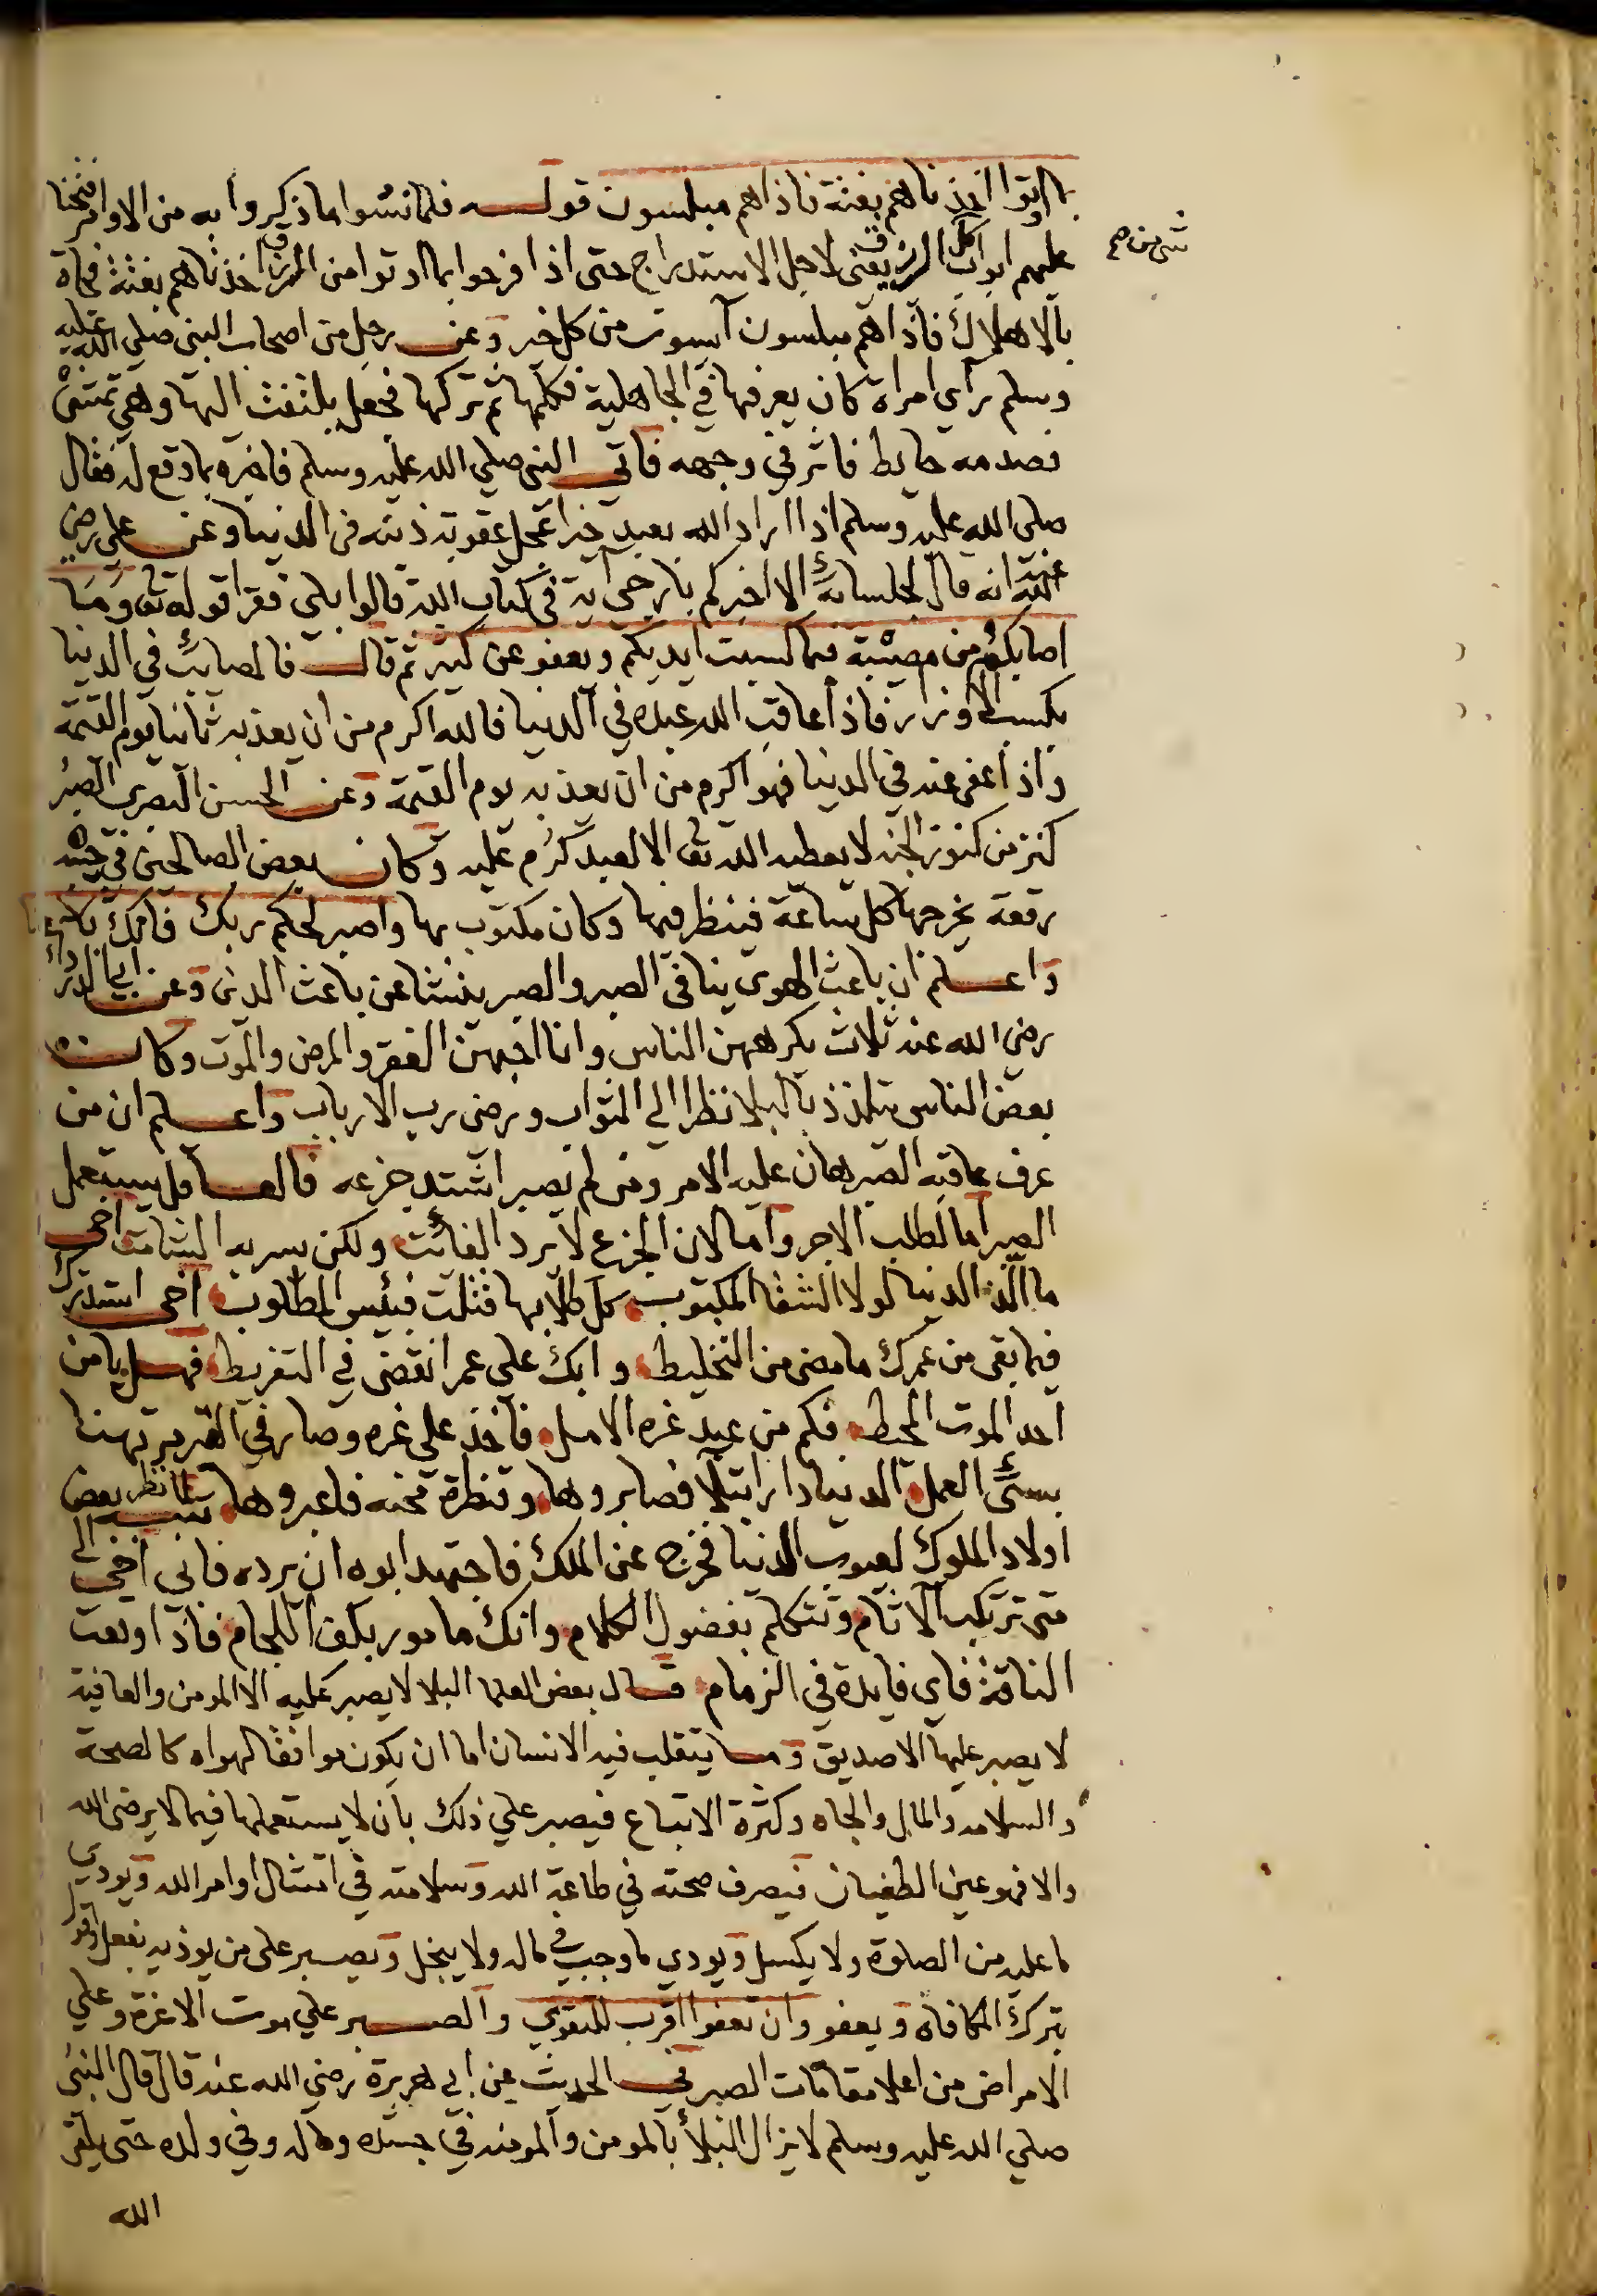 بما اوتوا اخذناهم بغتة فاذا هم مبلسون قوله فلما نسوا ما ذكروا به من الاوامر فتحنا
عليهم ابواب كل الرزق يعنى لاجل الاستدراج حتى اذا فرحوا بما اوتوا من الرزق اخذناهم بغتة فجاة
شى من صح
بالاهلاك فاذا هم مبلسون آيسون من كل خير وعن رجل من اصحاب النبى صلى الله عليه
وسلم راي امراة كان يعرفها في الجاهلية فكلمها ثم تركها فجعل يلتفت اليها وهي تمشى
فصدمه حايط فاثر في وجهه فاتى النبى صلي الله عليه وسلم فاخبره بما وقع له فقال
صلى الله عليه وسلم اذا اراد الله بعبد خيرا عجل عقوبة ذنبه في الدنيا وعن علي رضي
الله عنه انه قال لجلسائه الا اخبركم بارجى آية في كتاب الله قالوا بلي فقرا قوله تعا وما
اصابكم من مصيبة فبما كسبت ايديكم ويعفو عن كثير ثم قال فالمصائب في الدنيا
بكسب الاوزار فاذا عاقب الله عبده في الدنيا فالله اكرم من ان يعذبه ثانيا يوم القيمة
واذا عفى عنه في الدنيا فهو اكرم من ان يعذبه يوم القيمة وعن الحسن البصري الصبر
كنز من كنوز الجنة لا يعطيه الله تعا الا لعبد كرم عليه وكان بعض الصالحين في جيبه
رقعة يخرجها كل ساعة فينظر فيها وكان مكتوب بها واصبر لحكم ربك فانك باعيننا
واعلم ان باعث الهوى ينافي الصبر والصبر ينشا عن باعث الدين وعن ابي الدرداء
رضي الله عنه ثلاث يكرههن الناس وانا احبهن الفقر والمرض والموت وكان
بعض الناس يتلذذ بالبلا نظرا الي الثواب ورضى رب الارباب واعلم ان من
عرف عاقبة الصبر هان عليه الامر ومن لم يصبر اشتد جزعه فالعاقل يستعمل
الصبر اما لطلب الاجر واما لان الجزع لا يرد الفائت ولكن يسر به الشامت اخى
ما الذ الدنيا لولا الشقا المكتوب كل طلابها قتلت فبئس المطلوب اخى استدرك
فيما بقى من عمرك ما مضى من التخليط وابك على عمر انقضى في التفريط فهل يامن
احد الموت المحيط فكم من عبد غره الامل فاخذ على غره وصار في القبر مرتهنا
بسئ العمل الدنيا دار ابتلا فصابروها وقنطرة محنه فاعبروها لما نظر بعض
اولاد الملوك لعيوب الدنيا فخرج عن الملك فاجتهد ابوه ان يرده فابي اخى الى
متى ترتكب الآثام وتتكلم بفضول الكلام وانك مامور بكف اللجام فاذا وقعت
الناقة فاي فايدة في الزمام قال بعض العلما البلا لا يصبر عليه الا المومن والعافية
لا يصبر عليها الا صديق وما يتقلب فيه الانسان اما ان يكون موافقا لهواه كالصحة
والسلامة والمال والجاه وكثرة الاتباع فيصبر علي ذلك بان لا يستعملها فيما لا يرضى الله
والا فهو عين الطغيان فيصرف صحته في طاعة الله وسلامته في امتثال اوامر الله ويودي
ما عليه من الصلوة ولا يكسل ويودي ما وجب في ماله ولا يبخل ويصبر على من يوذيه بفعل او قول
بترك المكافاه ويعفو وان تعفوا اقرب للتقوي والصبر علي موت الاعزة وعلي
الامراض من اعلا مقامات الصبر في الحديث عن ابي هريرة رضي الله عنه قال قال النبى
صلي الله عليه وسلم لا يزال البلاء بالمومن والمومنه في جسده وماله وفي ولده حتى يلقى
الله